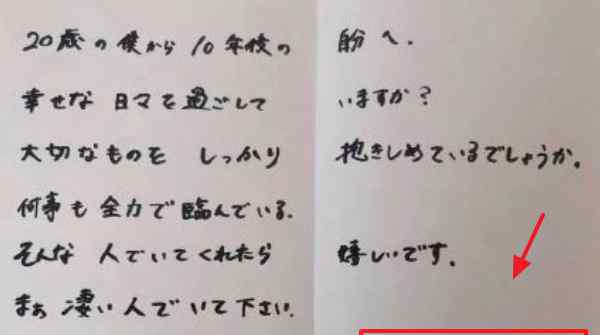 20歳の僕から10年後の自分へ.
幸せな日々を過ごしていますか？
大切なものをしっかり抱きしめているでしょうか。
何事も全力で臨んでいる.
そんな人でいてくれたら嬉しいです.
まぁ凄い人でいて下さい.